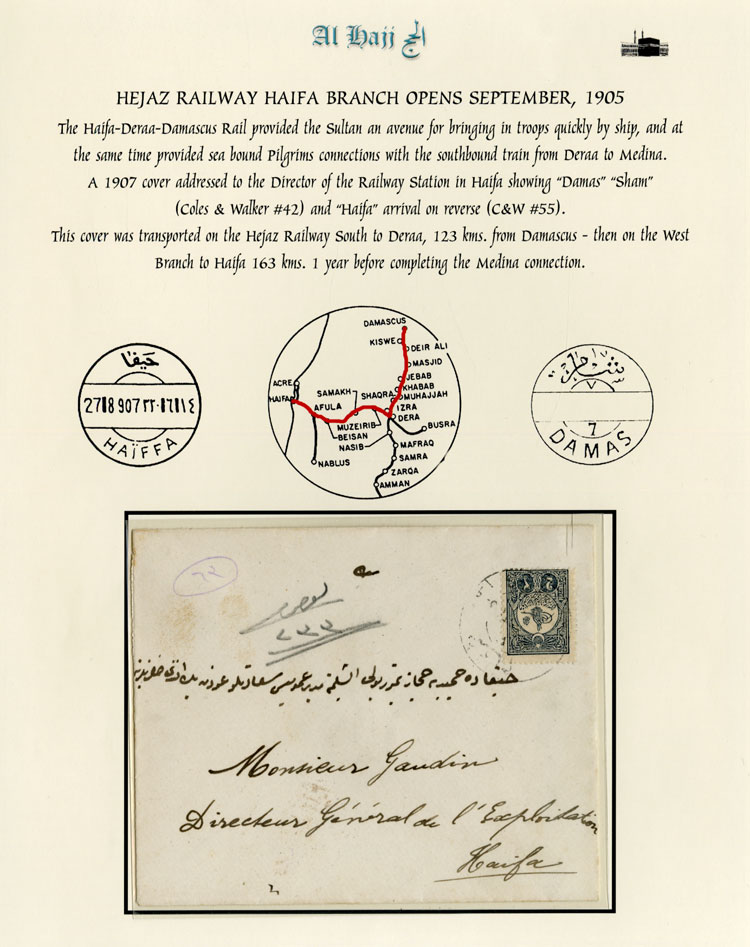 Al Hajj الحج
HEJAZ RAILWAY HAIFA BRANCH OPENS SEPTEMBER, 1905
The Haifa-Deraa-Damascus Rail provided the Sultan an avenue for bringing in troops quickly by ship, and at
the same time provided sea bound Pilgrims connections with the southbound train from Deraa to Medina.
A 1907 cover addressed to the Director of the Railway Station in Haifa showing “Damas” “Sham”
(Coles & Walker #42) and “Haifa” arrival on reverse (C&W #55).
This cover was transported on the Hejaz Railway South to Deraa, 123 kms. from Damascus - then on the West
Branch to Haifa 163 kms. 1 year before completing the Medina connection.
حيفا
HAÏFFA
DAMASCUS
KISWE
DEIR ALI
MASJID
JEBAB
KHABAB
MUHAJJAH
SHAQRA
IZRA
DERA
ACRE
HAIFA
SAMAKH
AFULA
MUZEIRIB
BEISAN
NASIB
BUSRA
MAFRAQ
SAMRA
NABLUS
ZARQA
AMMAN
شام
٧
7
DAMAS
٦٢
٢٣٣
Monsieur Gaudin
Directeur Général de l'Exploitation
Haifa